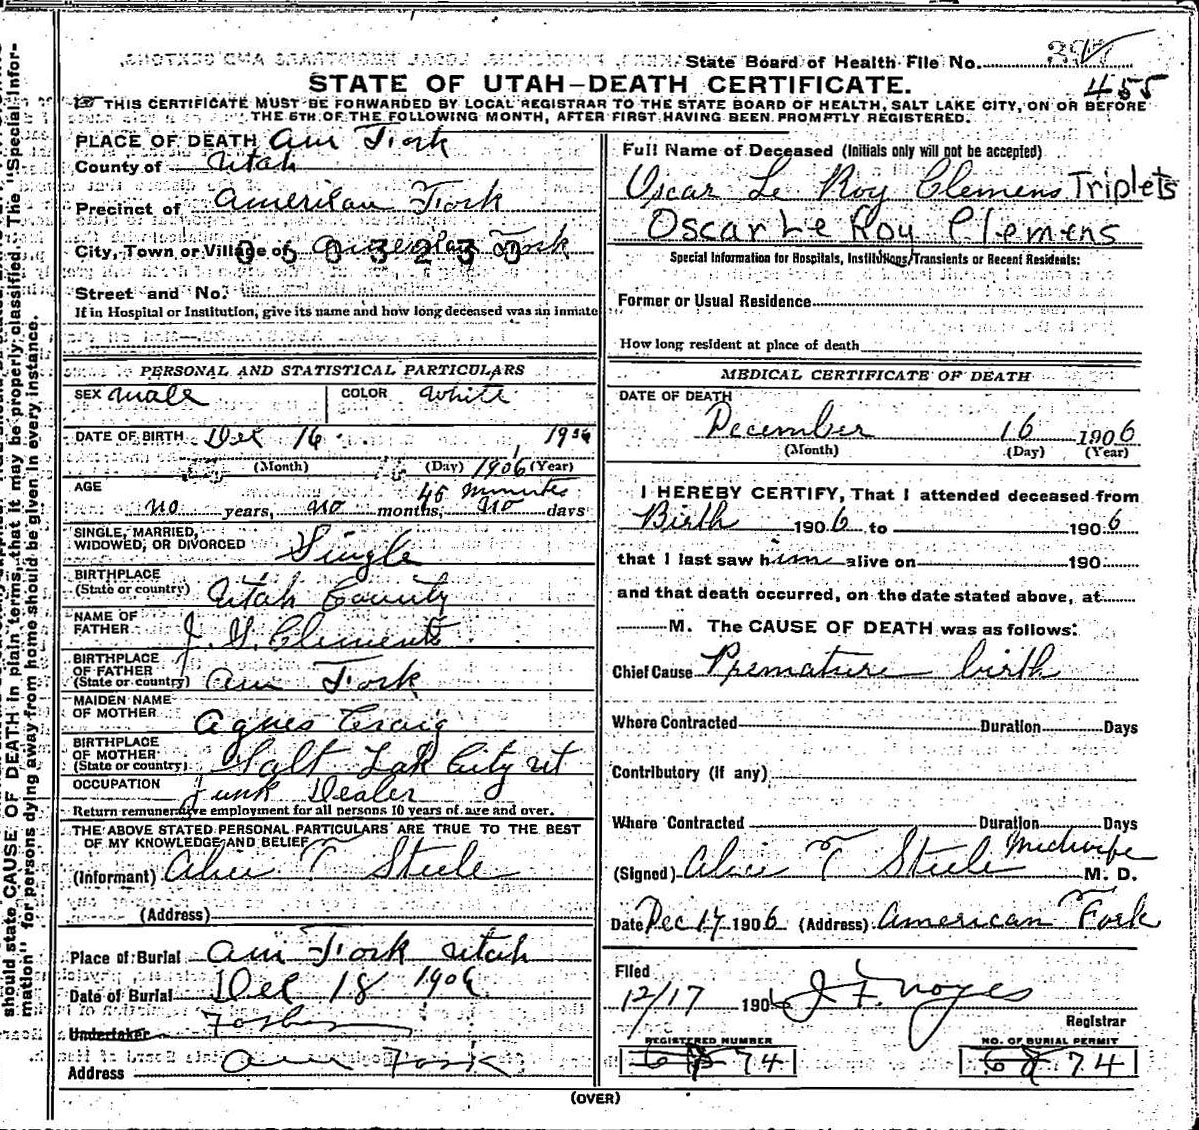 State Board of Health File No. 397
455
STATE OF UTAH—DEATH CERTIFICATE.
THIS CERTIFICATE MUST BE FORWARDED BY LOCAL REGISTRAR TO THE STATE BOARD OF HEALTH, SALT LAKE CITY, ON OR BEFORE
THE 5TH OF THE FOLLOWING MONTH, AFTER FIRST HAVING BEEN PROMPTLY REGISTERED.
PLACE OF DEATH Am Fork
County of Utah
Precinct of American Fork
City, Town or Village of American Fork
0503230
Street and No.
If in Hospital or Institution, give its name and how long deceased was an inmate
PERSONAL AND STATISTICAL PARTICULARS
SEX male COLOR White
DATE OF BIRTH Dec 16 1906
(Month) (Day) 1906 (Year)
45 minutes
AGE no years, no months, no days
SINGLE, MARRIED,
WIDOWED, OR DIVORCED Single
BIRTHPLACE
(State or country) Utah County
NAME OF
FATHER J. G. Clements
BIRTHPLACE
OF FATHER
(State or country) Am Fork
MAIDEN NAME
OF MOTHER Agnes Craig
BIRTHPLACE
OF MOTHER
(State or country) Salt Lak City ut
OCCUPATION Junk Dealer
Return remunerative employment for all persons 10 years of age and over.
THE ABOVE STATED PERSONAL PARTICULARS ARE TRUE TO THE BEST
OF MY KNOWLEDGE AND BELIEF
(Informant) Alice T Steele
(Address)
Place of Burial Am Fork Utah
Date of Burial Dec 18 1906
Undertaker Father
Address Am Fork
Full Name of Deceased (Initials only will not be accepted)
Oscar Le Roy Clemens Triplets
Oscar Le Roy Clemens
Special Information for Hospitals, Institutions, Transients or Recent Residents:
Former or Usual Residence
How long resident at place of death
MEDICAL CERTIFICATE OF DEATH
DATE OF DEATH
December 16 1906
(Month) (Day) (Year)
I HEREBY CERTIFY, That I attended deceased from
Birth 1906 to 1906
that I last saw him alive on 190
and that death occurred, on the date stated above, at
M. The CAUSE OF DEATH was as follows:
Chief Cause Premature birth
Where Contracted Duration Days
Contributory (if any)
Where Contracted Duration Days
(Signed) Alice T Steele Midwife M. D.
Date Dec 17 1906 (Address) American Fork
Filed
12/17 1906 J F. Noyes
Registrar
REGISTERED NUMBER
74
NO. OF BURIAL PERMIT
74
(OVER)
should state CAUSE OF DEATH in plain terms, that it may be properly classified. The "Special Infor-
mation" for persons dying away from home should be given in every instance.